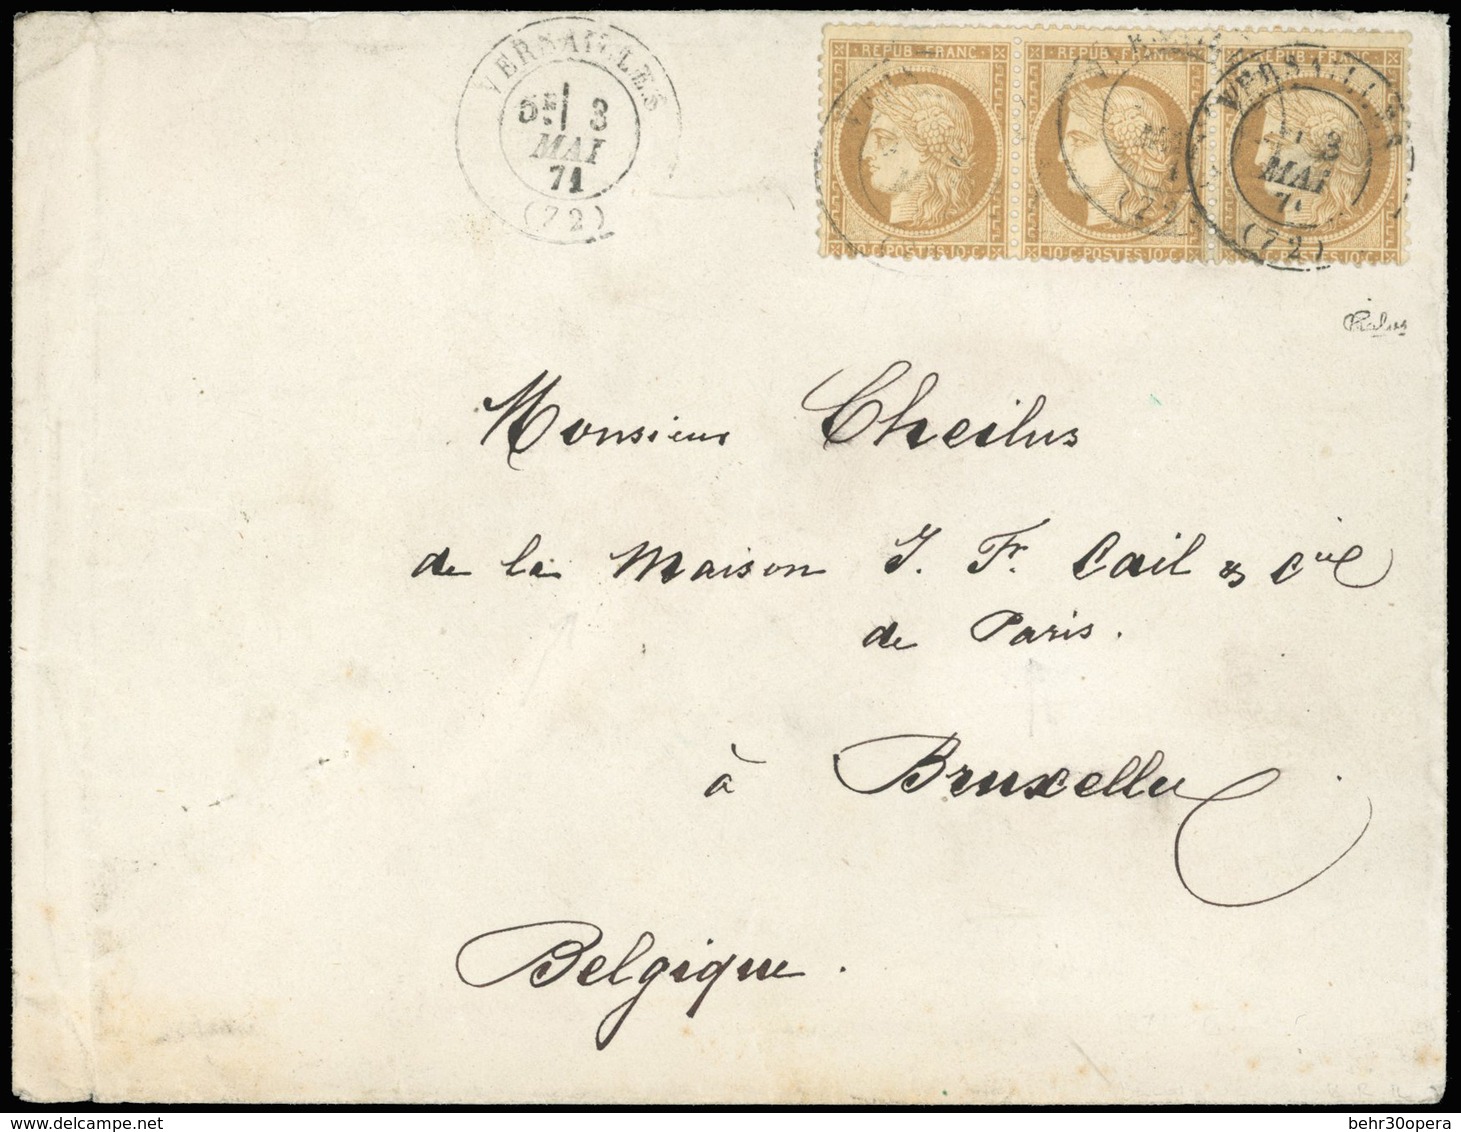 VERSAILLES
5E 3
MAI
71
(72)
REPUB·FRANC·
10·C·POSTES·10·C·
REPUB·FRANC·
10·C·POSTES·10·C·
REPUB·FRANC·
10·C·POSTES·10·C·
VERSAILLES
3
MAI
71
(72)
Monsieur Cheilus
de la Maison J. Fr. Cail & Cie
de Paris.
à Bruxelles
Belgique.
delcampe.net
behr30opera